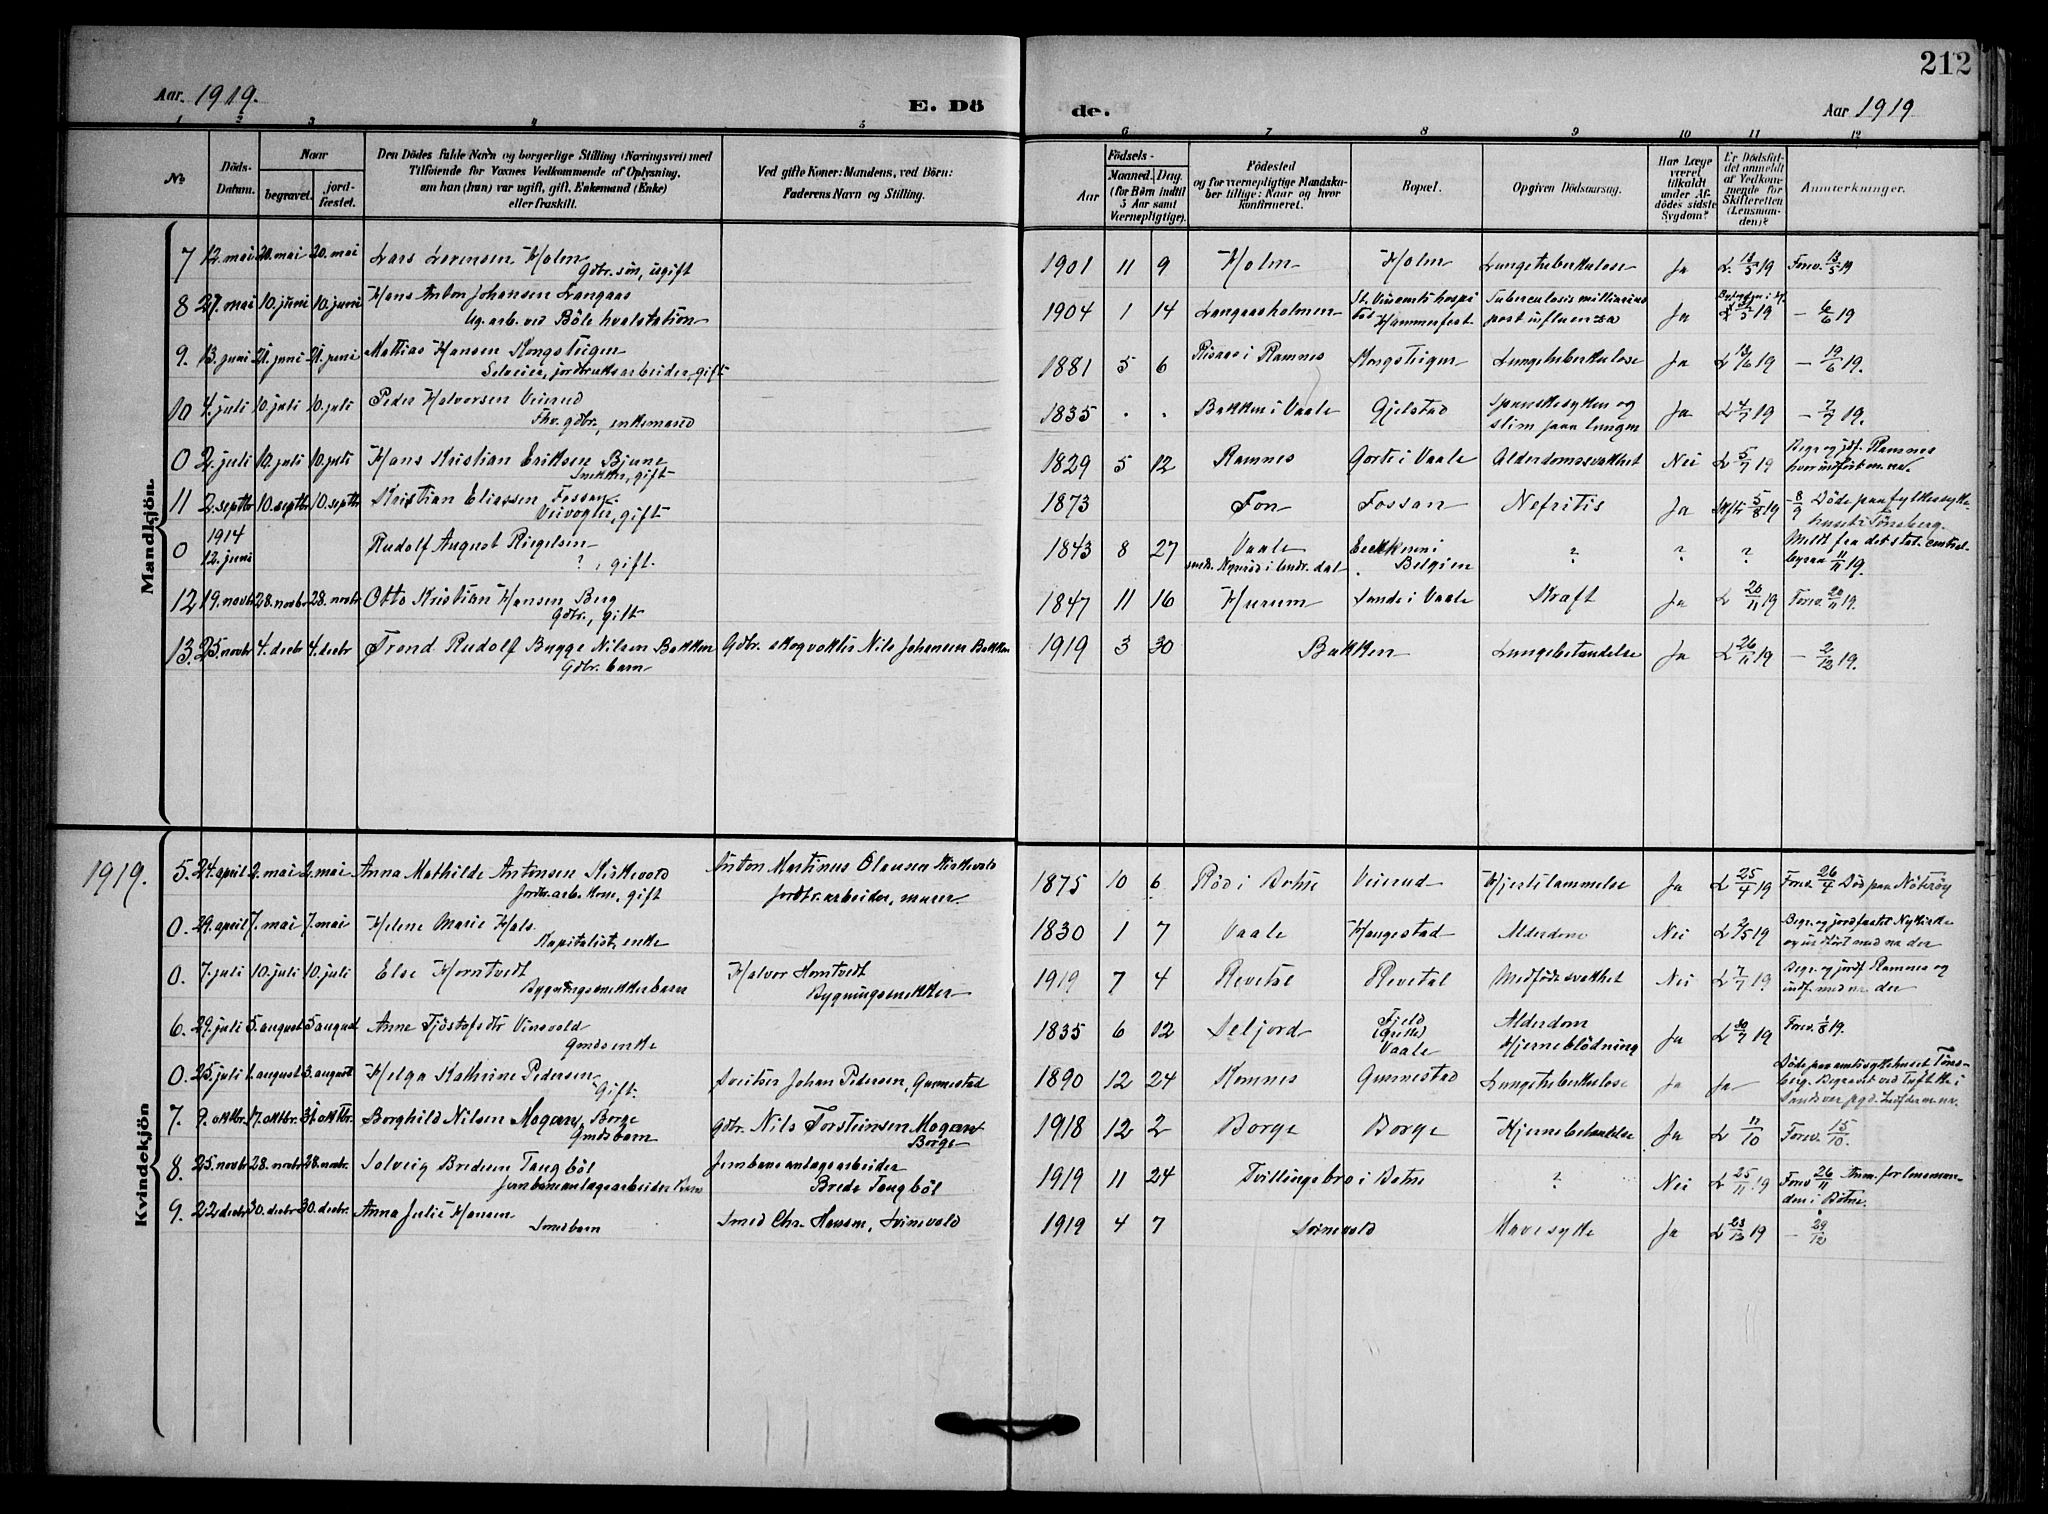 212
Aar. 1919.
E. Dö
de.
Aar 1919
1 2 3 4 5 6 7 8 9 10 11 12
No
Döds-
Datum.
Naar
begravet.
jord-
fæstet.
Den Dödes fulde Navn og borgerlige Stilling (Næringsvei) med
Tilföiende for Voxnes Vedkommende af Oplysning,
om han (hun) var ugift, gift, Enkemand (Enke)
eller fraskilt.
Ved gifte Koner: Mandens, ved Börn:
Faderens Navn og Stilling.
Födsels-
Aar
Maaned. Dag.
(for Börn indtil
5 Aar samt
Værnepligtige).
Födested
og for værnepligtige Mandska-
ber tillige: Naar og hvor
konfirmeret.
Bopæl.
Opgiven Dödsaarsag.
Har Læge
været
tilkaldt
under Af-
dödes sidste
Sygdom?
Er Dödsfal-
det anmeldt
af Vedkom-
mende for
Skifteretten
(Lensman-
den)?
Anmærkninger.
Mandkjön.
7 12. mai 20. mai 20. mai Lars Lorensen Holm
Gdbr. søn, ugift
1901 11 9 Holm Holm Lungetuberkulose Ja L. 13/5 19 Forev. 13/5 19
8 27. mai 10. juni 10. juni Hans Anton Johansen Langaas
Ug. arb. ved Böle hvalstation
1904 1 14 Langaasholmen Hammerfest Tuberculosis milliaris
post influenza Ja 19 — 6/6 19
9. 13. juni 21. juni 21. juni Mattias Hansen Kongsteigen
Selveier, jordbruksarbeider, gift
1881 5 6 i Ramnes Kongsteigen Lungetuberkulose Ja L 19 — 19/6 19.
10 4. juli 10. juli 10. juli Peder Halvorsen Veierud
Fhv. gdbr., enkemand
1835 . . Bakken i Vaale Gjelstad Spanskesyken og
slim paa lungen Ja L 4/7 19 — 7/7 19.
0 2. juli 10. juli 10. juli Hans Kristian Eriksen Bjune
Snekker, gift
1829 5 12 Ramnes i Vaale Alderdomssvakhet Nei L 5/7 19 Begr. og jdf. Ramnes
11 2. septbr 10. septbr 10. septbr Kristian Eliassen Fossan.
Veivogter, gift
1873 Fon Fossan Nefritis Ja 19 — 8/9 Döde paa fylkessyke-
huset i Tönsberg.
0 1914
12. juni Rudolf August Riegelsen
?, gift.
1843 8 27 Vaale
Belgien ? ? ? Meldt fra det stat. central-
byraa 11/11 19.
12 19. novbr 28. novbr 28. novbr Otto Kristian Hansen Berg
Gdbr., gift
1847 11 16 Hurum Sande i Vaale Kraft Ja L 20/11 19 Forev. 20/11 19.
13. 25. novbr 4. decbr 4. decbr Trond Rudolf Bugge Nilsen Bakken Gdbr. skogvokter Nils Johansen Bakken
Gdbr. barn
1919 3 30 Bakken Lungebetændelse Ja L 26/11 19 — 2/12 19.
1919.
Kvindekjön
5. 24. april 2. mai 2. mai Anna Mathilde Antonsen Kirkevold Anton Martinus Olausen Kirkevold
Jordbr. arb. kone, gift Jordbr. arbeider, murer.
1875 10 6 Röd i Botne Veierud Hjertelammelse Ja L 25/4 19 Forev. 26/4 Död paa Nöteröy
0. 29. april 7. mai 7. mai Helene Marie Hals
Kapitalist, enke
1830 1 7 Vaale Haugestad Alderdom Nei L 2/5 19 Begr. og jordfæstet Nykirke
og indfört med no der
0. 7. juli 10. juli 10. juli Else Horntvedt Halvor Horntvedt
Bygningssnekkerbarn Bygningssnekker
1919 7 4 Revetal Revetal Medfödt svakhet Nei L 7/7 19 Begr. og jordf. Ramnes og
indf. med no der
6. 29. juli 5. august 5 august Anne Tjöstofsdtr Vinsvold
Gmdsenke
1835 6 12 Seljord Fjeld
Vaale Alderdom
Hjerneblödning Ja L 30/7 19 Forev. 1/8 19.
0. 25. juli 1. august 3. august Helga Kathrine Pedersen
Gift. Sveitser Johan Pedersen, Gunnestad
1890 12 24 Komnes Gunnestad Lungetuberkulose Ja Ja Döde paa amtssykehuset Töns-
berg. Begravet ved Tuft kke i
Sandsver
7. 9. oktbr. 17. oktbr. 31. oktbr. Borghild Nilsen Mogan, Borge Gdbr. Nils Torsteinsen Mogan
Gmdsbarn Borge
1918 12 2 Borge Borge Hjernebetændelse Ja L 11/10 Forev. 15/10.
8. 25. novbr 28. novbr 28. novbr. Solveig Bredesen Taugböl Jernbaneanlægsarbeider
Jernbaneanlægsarbeider Barn Brede Taugböl
1919 11 24 Tvillingsbro i Botne ? Nei L 25/11 19 Forev 26/11 Anm. for lensman-
den i Botne.
9. 22 decbr 30. decbr 30. decbr. Anna Julie Hansen
Smedbarn Smed Chr. Hansen, Svinevold
1919 4 7 Svinevold Mavesyke Ja L 23/12 19 — 29/12